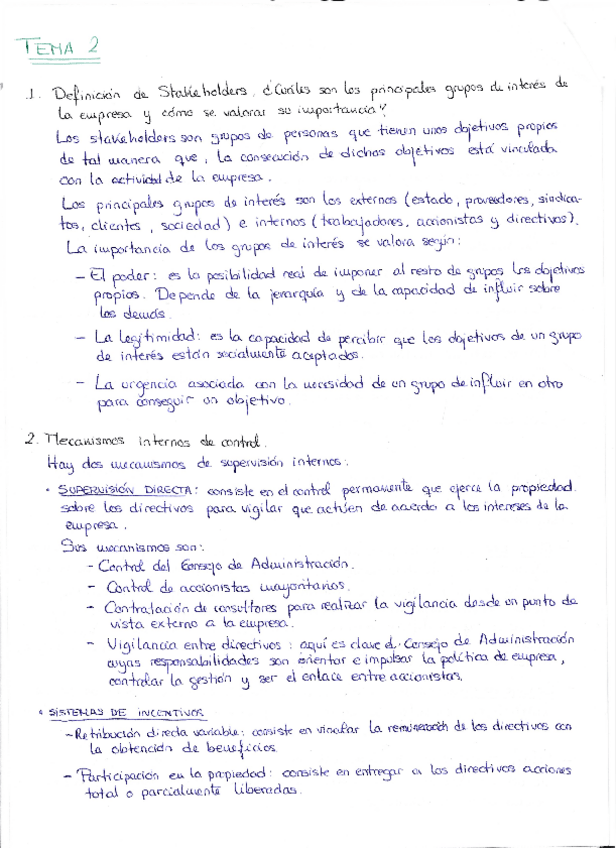 TEMA 2
1. Definición de Stakeholders. ¿Cuáles son los principales grupos de interés de
la empresa y cómo se valoran su importancia?
Los stakeholders son grupos de personas que tienen unos objetivos propios
de tal manera que, la consecución de dichos objetivos está vinculada
con la actividad de la empresa.
Los principales grupos de interés son los externos (estado, proveedores, sindica-
tos, clientes, sociedad) e internos (trabajadores, accionistas y directivos).
La importancia de los grupos de interés se valora según:
- El poder: es la posibilidad real de imponer al resto de grupos los objetivos
propios. Depende de la jerarquía y de la capacidad de influir sobre
los demás.
- La legitimidad: es la capacidad de percibir que los objetivos de un grupo
de interés están socialmente aceptados.
- La urgencia asociada con la necesidad de un grupo de influir en otro
para conseguir un objetivo.
2. Mecanismos internos de control.
Hay dos mecanismos de supervisión internos:
• SUPERVISIÓN DIRECTA: consiste en el control permanente que ejerce la propiedad
sobre los directivos para vigilar que actúen de acuerdo a los intereses de la
empresa.
Sus mecanismos son:
- Control del Consejo de Administración.
- Control de accionistas mayoritarios.
- Contratación de consultores para realizar la vigilancia desde un punto de
vista externo a la empresa.
- Vigilancia entre directivos: aquí es clave el Consejo de Administración
cuyas responsabilidades son orientar e impulsar la política de empresa,
controlar la gestión y ser el enlace entre accionistas.
• SISTEMAS DE INCENTIVOS
- Retribución directa variable: consiste en vincular la remuneración de los directivos con
la obtención de beneficios.
- Participación en la propiedad: consiste en entregar a los directivos acciones
total o parcialmente liberadas.